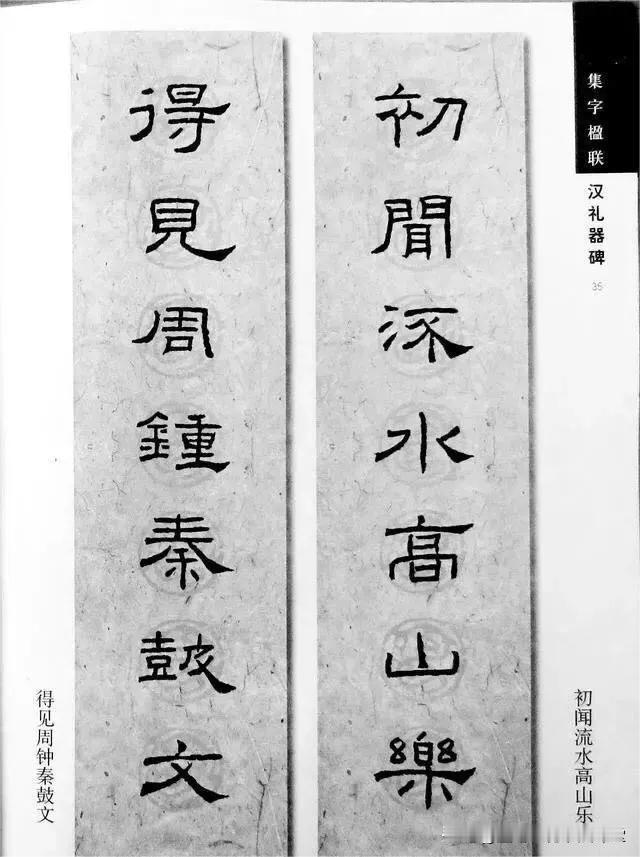 集字楹联 汉礼器碑
35
初聞流水高山樂
初闻流水高山乐
得見周鍾秦鼓文
得见周钟秦鼓文